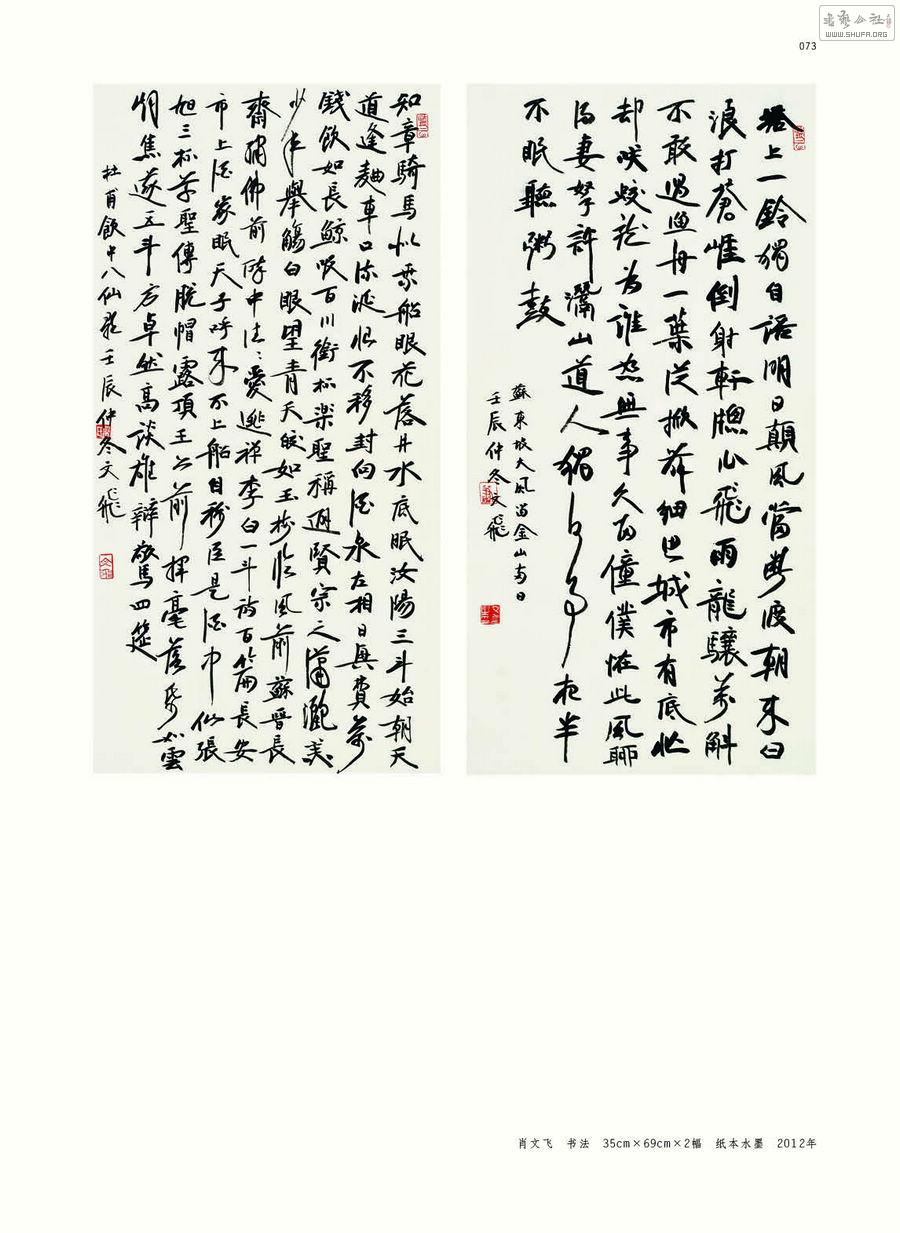 書藝公社
WWW.SHUFA.ORG
073
塔上一鈴獨自語明日顛風當斷渡朝來白
浪打蒼崖倒射軒牕作飛雨龍驤萬斛
不敢過漁舟一葉從掀舞細思城市有底忙
却笑蛟龍為誰怒無事久留僮僕怪此風聊
得妻孥許灊山道人獨何事夜半
不眠聽粥鼓
蘇東坡大風留金山兩日
壬辰仲冬文飛
知章騎馬似乘船眼花落井水底眠汝陽三斗始朝天
道逢麴車口流涎恨不移封向酒泉左相日興費萬
錢飲如長鯨吸百川銜杯樂聖稱避賢宗之瀟灑美
少年舉觴白眼望青天皎如玉樹臨風前蘇晉長
齋繡佛前醉中往往愛逃禪李白一斗詩百篇長安
市上酒家眠天子呼來不上船自稱臣是酒中仙張
旭三杯草聖傳脫帽露頂王公前揮毫落紙如雲
烟焦遂五斗方卓然高談雄辯驚四筵
杜甫飲中八仙歌壬辰仲冬文飛
肖文飞 书法 35cm×69cm×2幅 纸本水墨 2012年